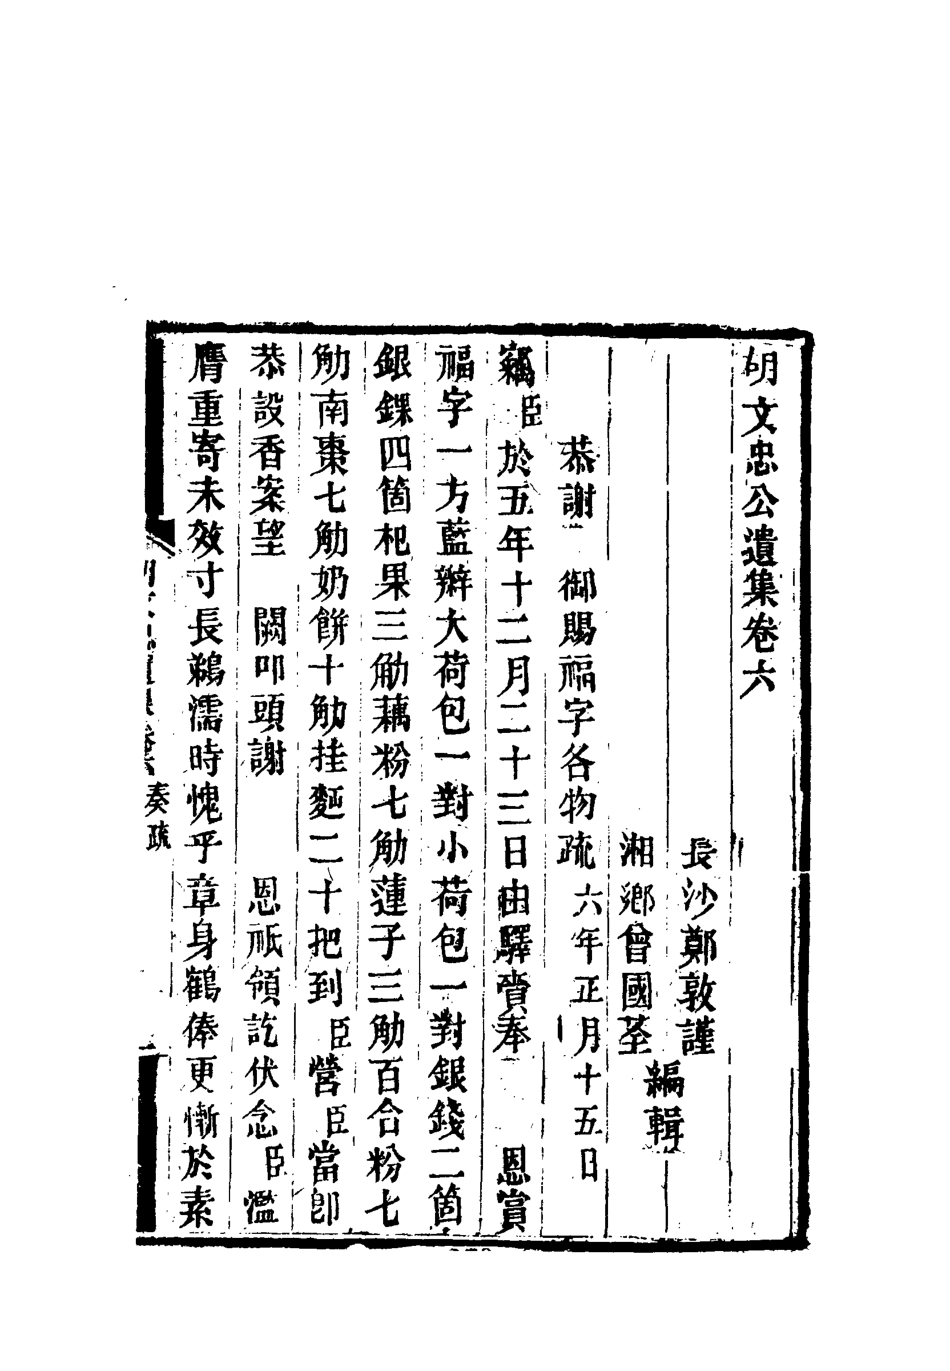 胡文忠公遺集卷六
長沙鄭敦謹
湘鄉曾國荃
編輯
恭謝 御賜福字各物疏 六年正月十五日
竊臣於五年十二月二十三日由驛賫奉 恩賞
福字一方藍辦大荷包一對小荷包一對銀錢二箇
銀錁四箇杞果三觔藕粉七觔蓮子三觔百合粉七
觔南棗七觔奶餅十觔挂麫二十把到臣營臣當卽
恭設香案望 闕叩頭謝 恩祗領訖伏念臣濫
膺重寄未效寸長鵜濡時愧乎章身鶴俸更慚於素
奏疏